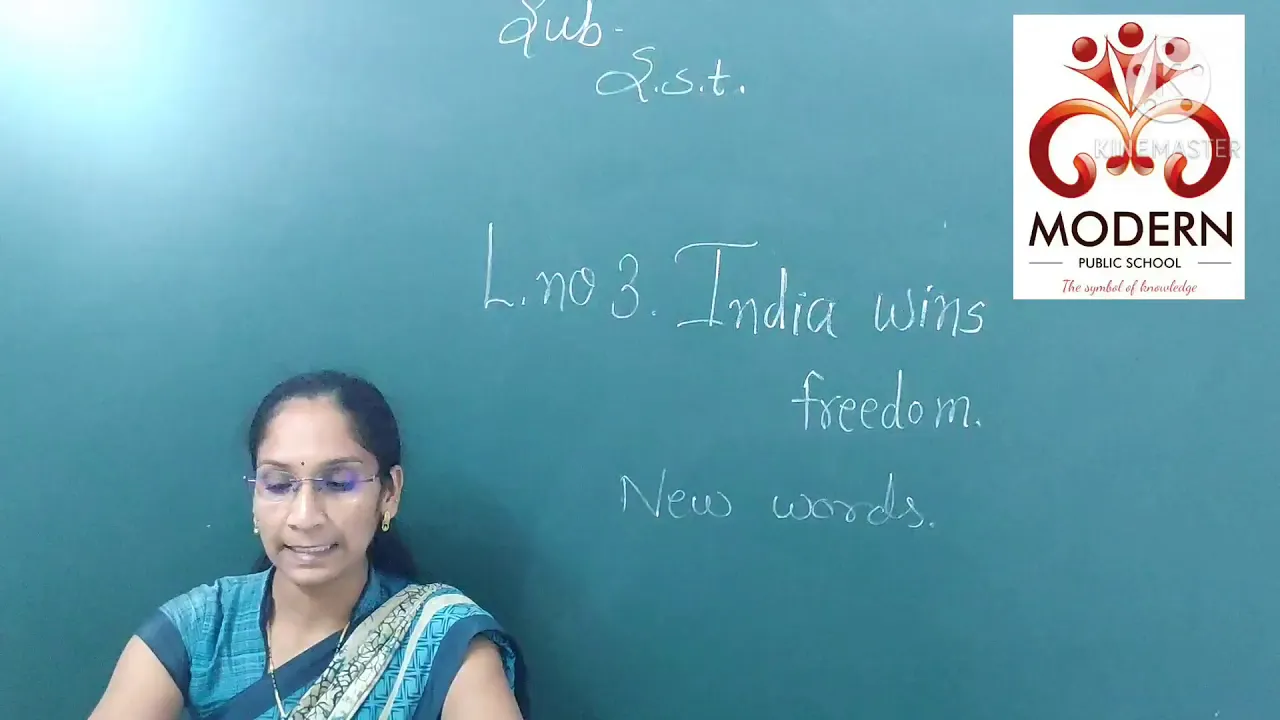 Sub-
S.s.t.
L.no 3. India wins
freedom.
New words.
KINEMASTER
MODERN
PUBLIC SCHOOL
The symbol of knowledge